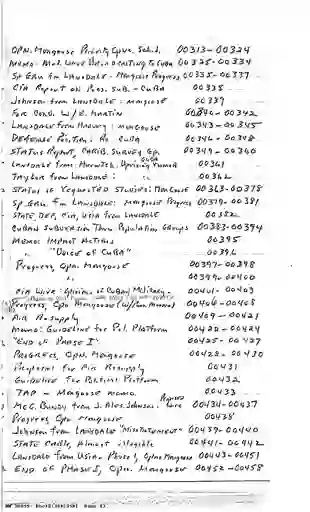 OPN. Mongoose Priority Opns. Sched. 00313-00324
Memo: Med. Wave Broadcasting to Cuba 00325-00334
Sp. Grp. fm Lansdale - Mongoose Progress 00335-00337
CIA Report on Poss. Sub. - Cuba 00338
Johnson from Lansdale: Mongoose 00339
For Cond. W/E. Martin 00340-00342
Lansdale from Harvey: Mongoose 00343-00345
Defense Position: Re Cuba 00346-00348
Status Report, Carib. Survey Gp. 00349-00360
Lansdale from: Hurwitch: Uprising Rumor Cuba 00361
Taylor from Lansdale: " 00362
Status of Requested Studies: Mongoose 00363-00378
Sp. Grp. fm Lansdale: Mongoose Progress 00379-00381
State, DEF, CIA, USIA from Lansdale 00382
Cuban Subversion Thru Population Groups 00383-00394
Memo: Impact Actions 00395
" "Voice of Cuba" 00396
Progress, Opn. Mongoose 00397-00398
" 00399-00400
CIA Wave - Opinion of Cuban Military 00401-00403
Progress, Opn Mongoose (w/ Memo) 00404-00408
Air Re-supply 00409-00421
Memo: Guideline for Pol. Platform 00422-00424
"End of Phase I" 00425-00427
Progress, Opn. Mongoose 00428-00430
Proposal for Air Resupply 00431
Guideline for Political Platform 00432
TAP - Mongoose Memo. 00433
McG. Bundy from J. Alex Johnson: 00434-00437
Progress Opn Mongoose 00438
Johnson from Lansdale "Misstatement" 00439-00440
State Cable, Almost illegible 00441-00442
Lansdale from USIA - Phase I, Opn Mongoose 00443-00451
End of Phase I, Opn. Mongoose 00452-00458